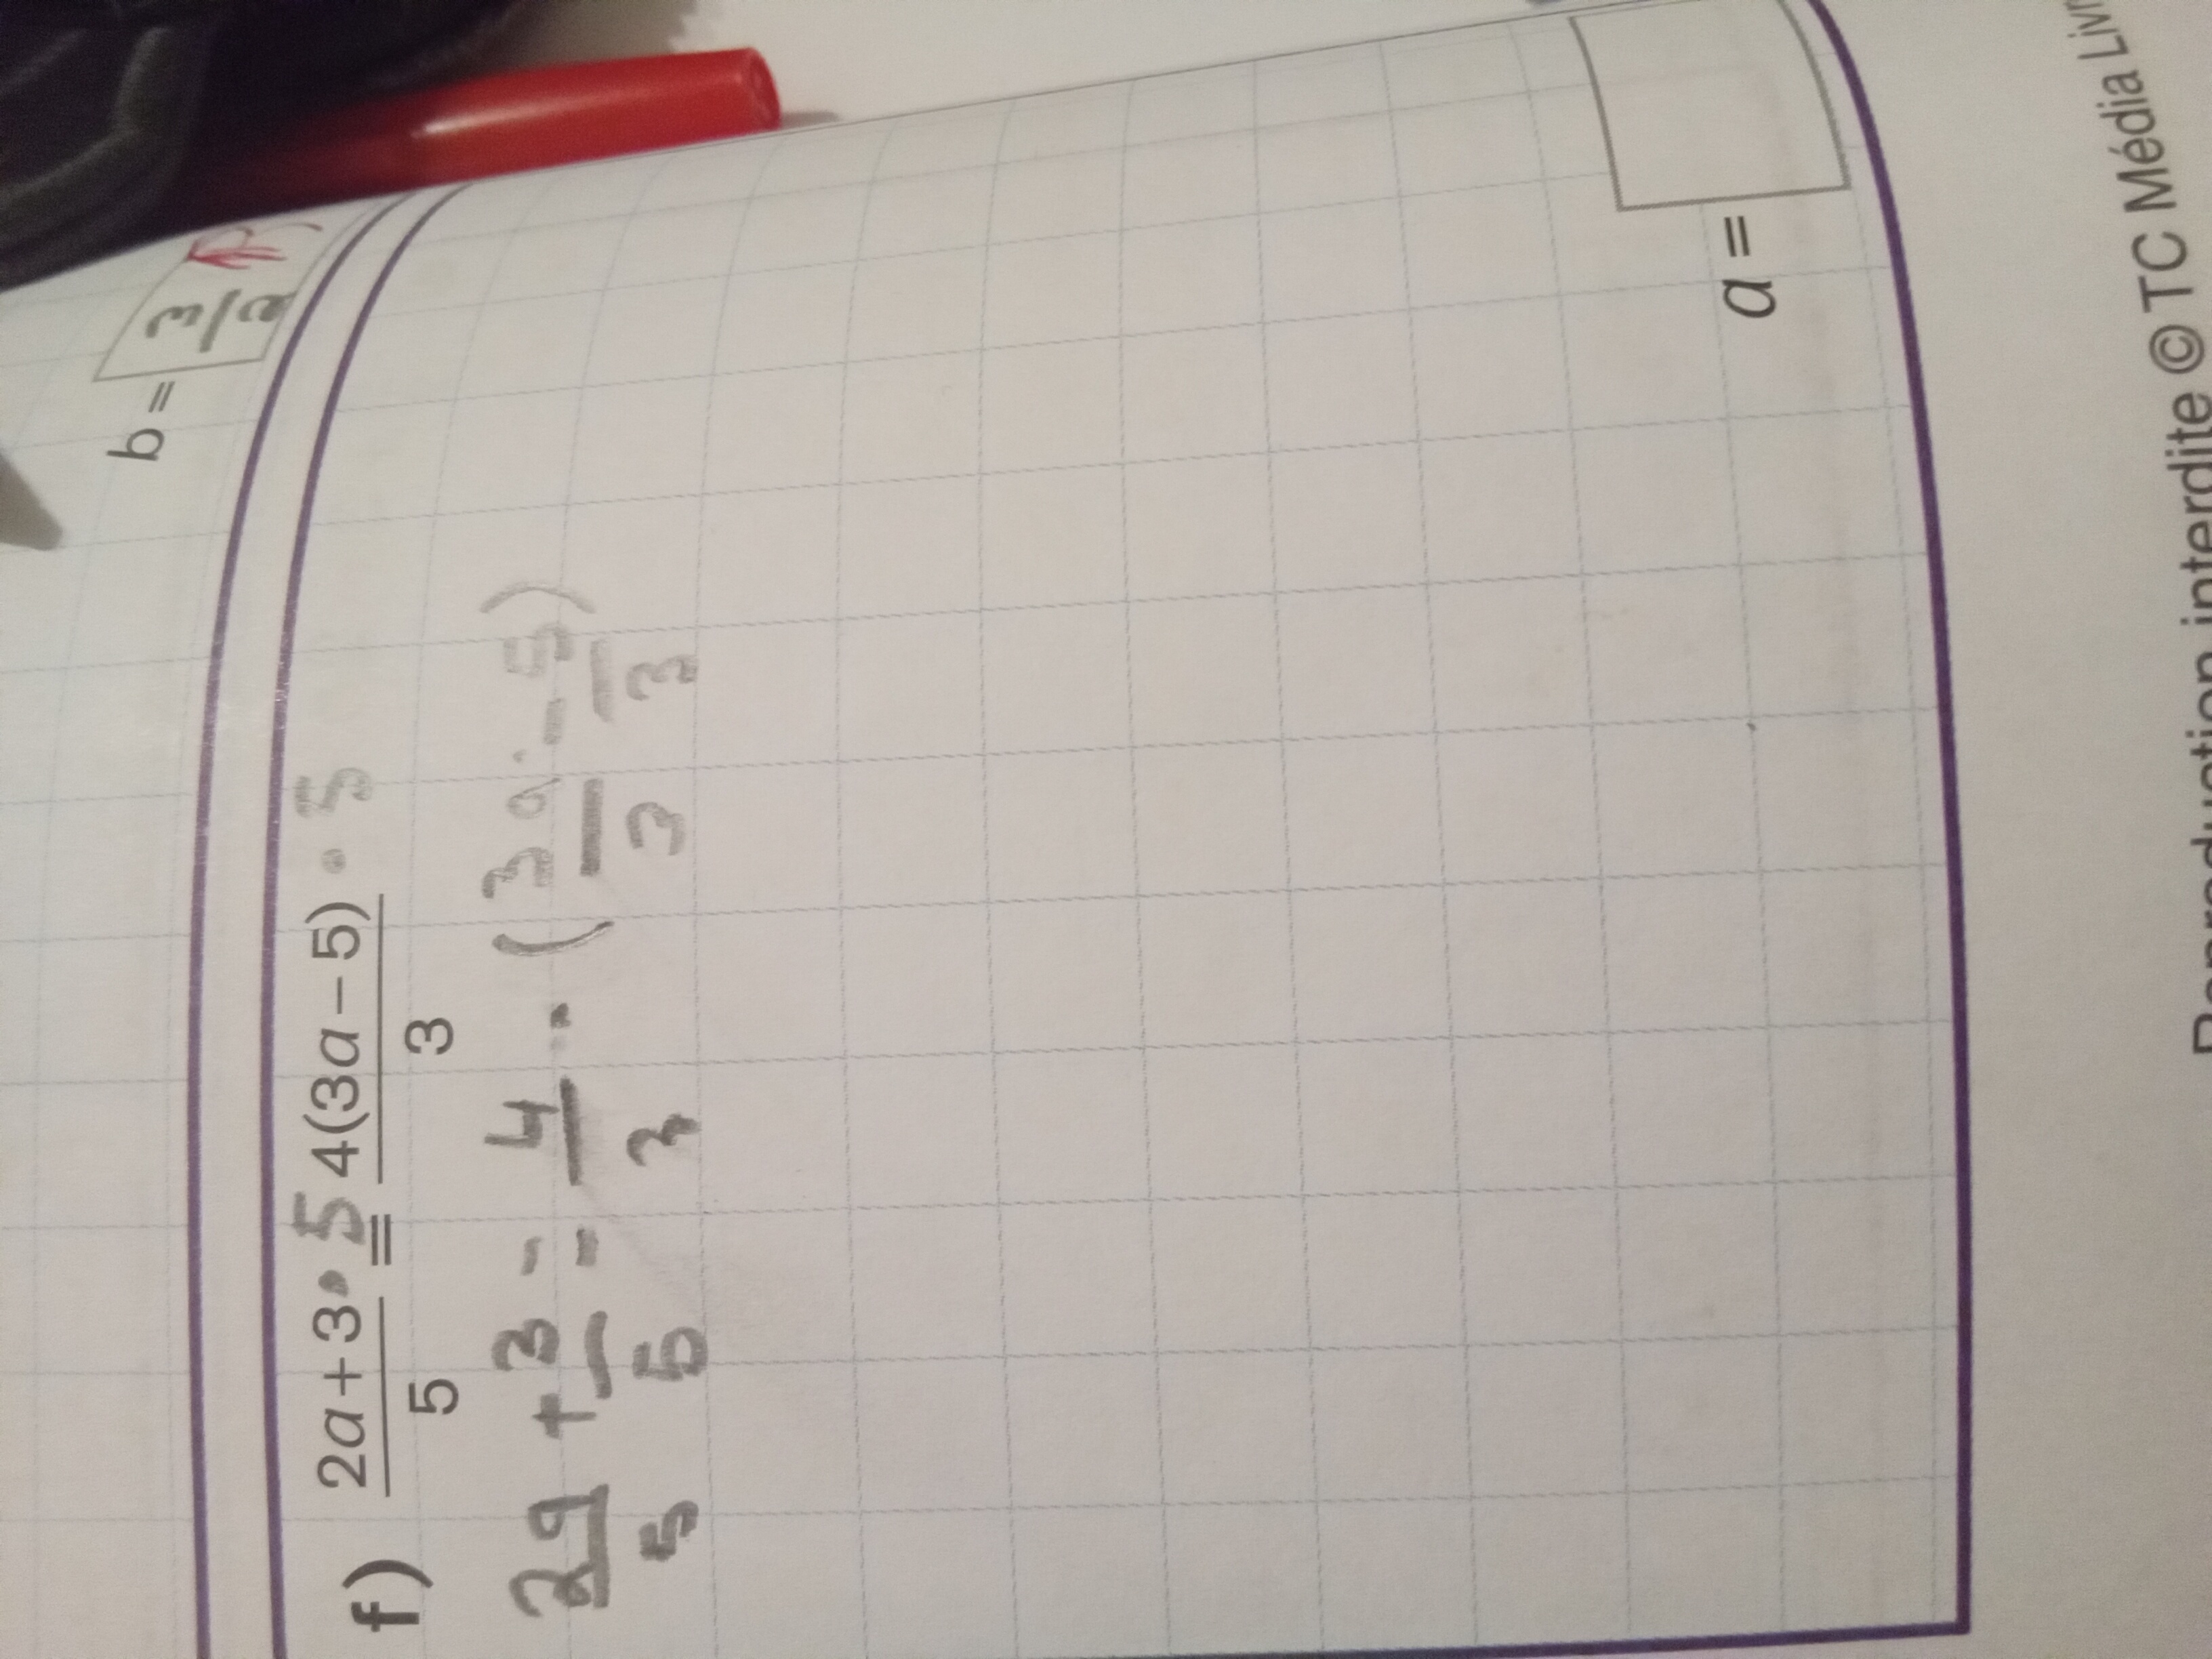 b = 3/2
f) (2a+3)/5 · 5 = 4(3a−5)/3 · 5
2a/5 + 3/5 = 4/3 · (3a/3 - 5/3)
a =
Reproduction interdite © TC Média Livr